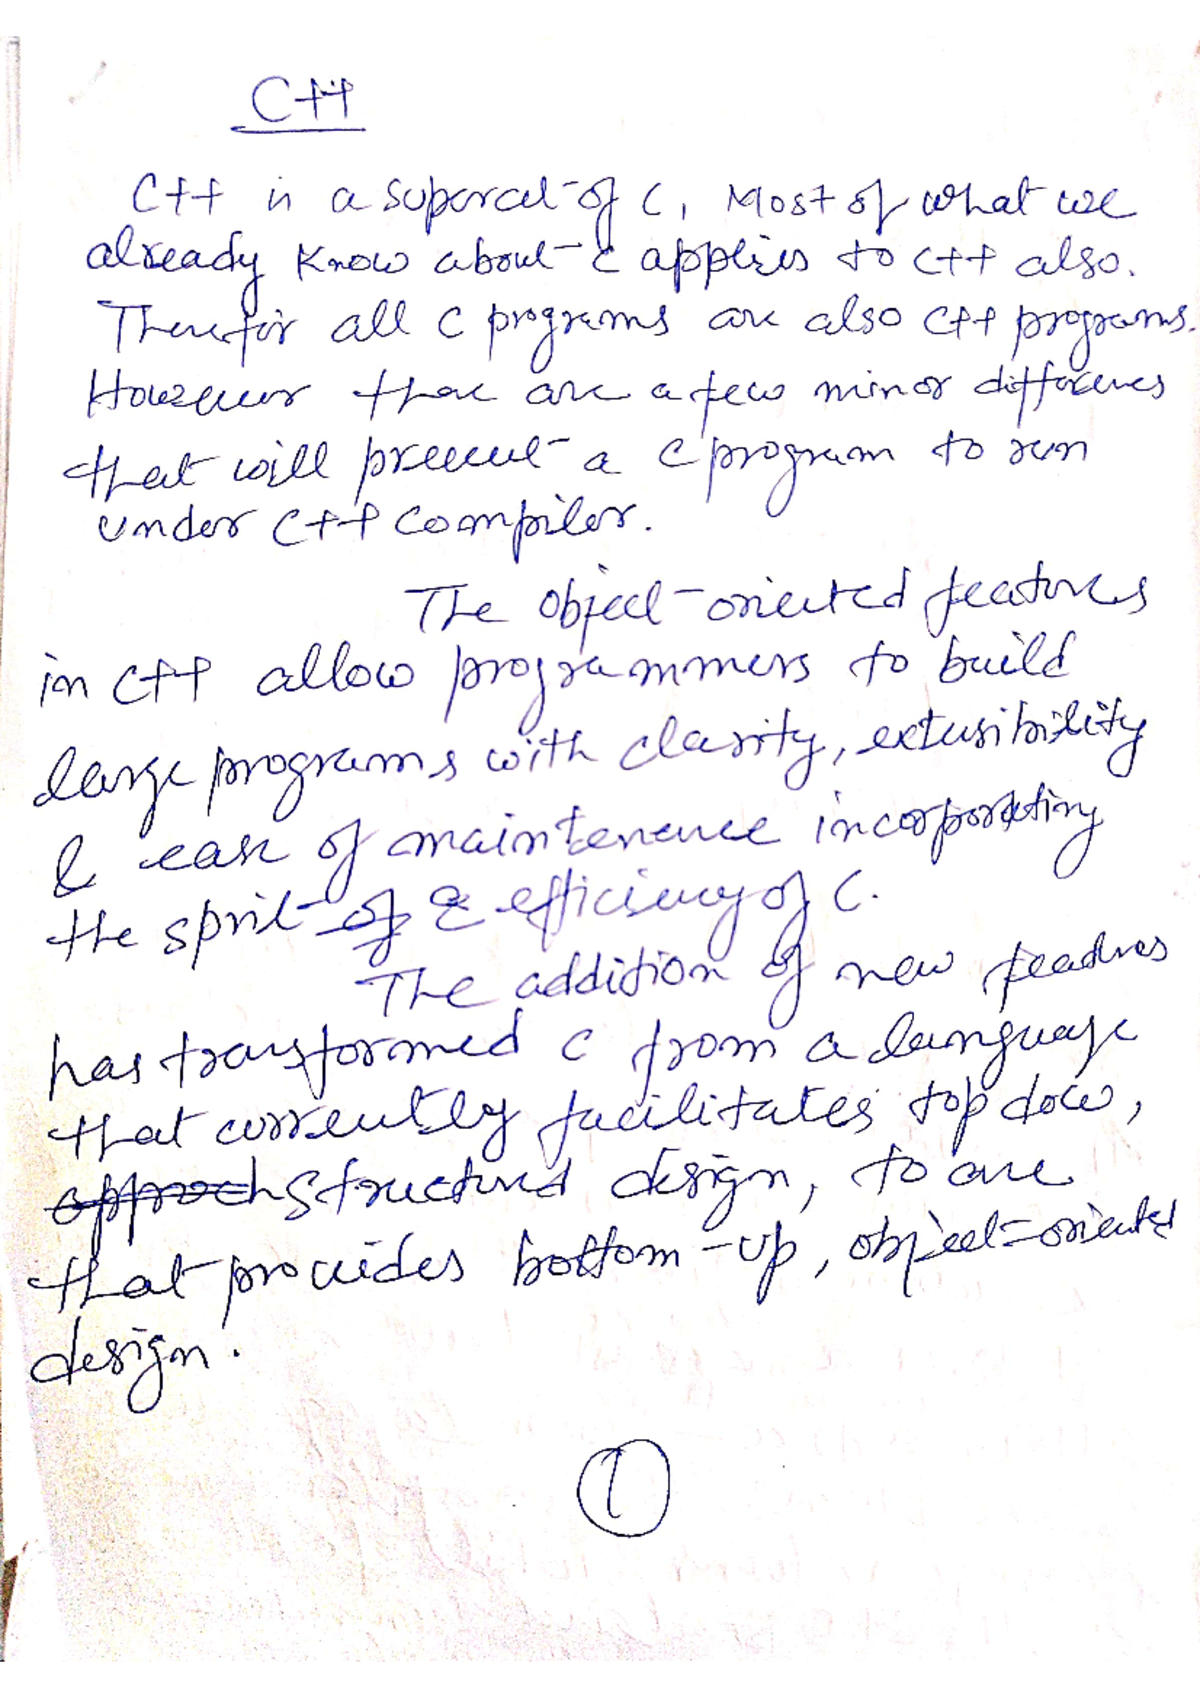 C++
C++ is a superset of C, Most of what we
already know about C applies to C++ also.
Therefor all C programs are also C++ programs.
However there are a few minor differences
that will prevent a C program to run
under C++ compiler.
The object-oriented features
in C++ allow programmers to build
large programs with clarity, extensibility
& ease of maintenence incorporating
the sprit of & efficiency of C.
The addition of new features
has transformed C from a language
that currently facilitates top dow,
approch structured design, to one
that provides bottom-up, object-oriented
design.
1